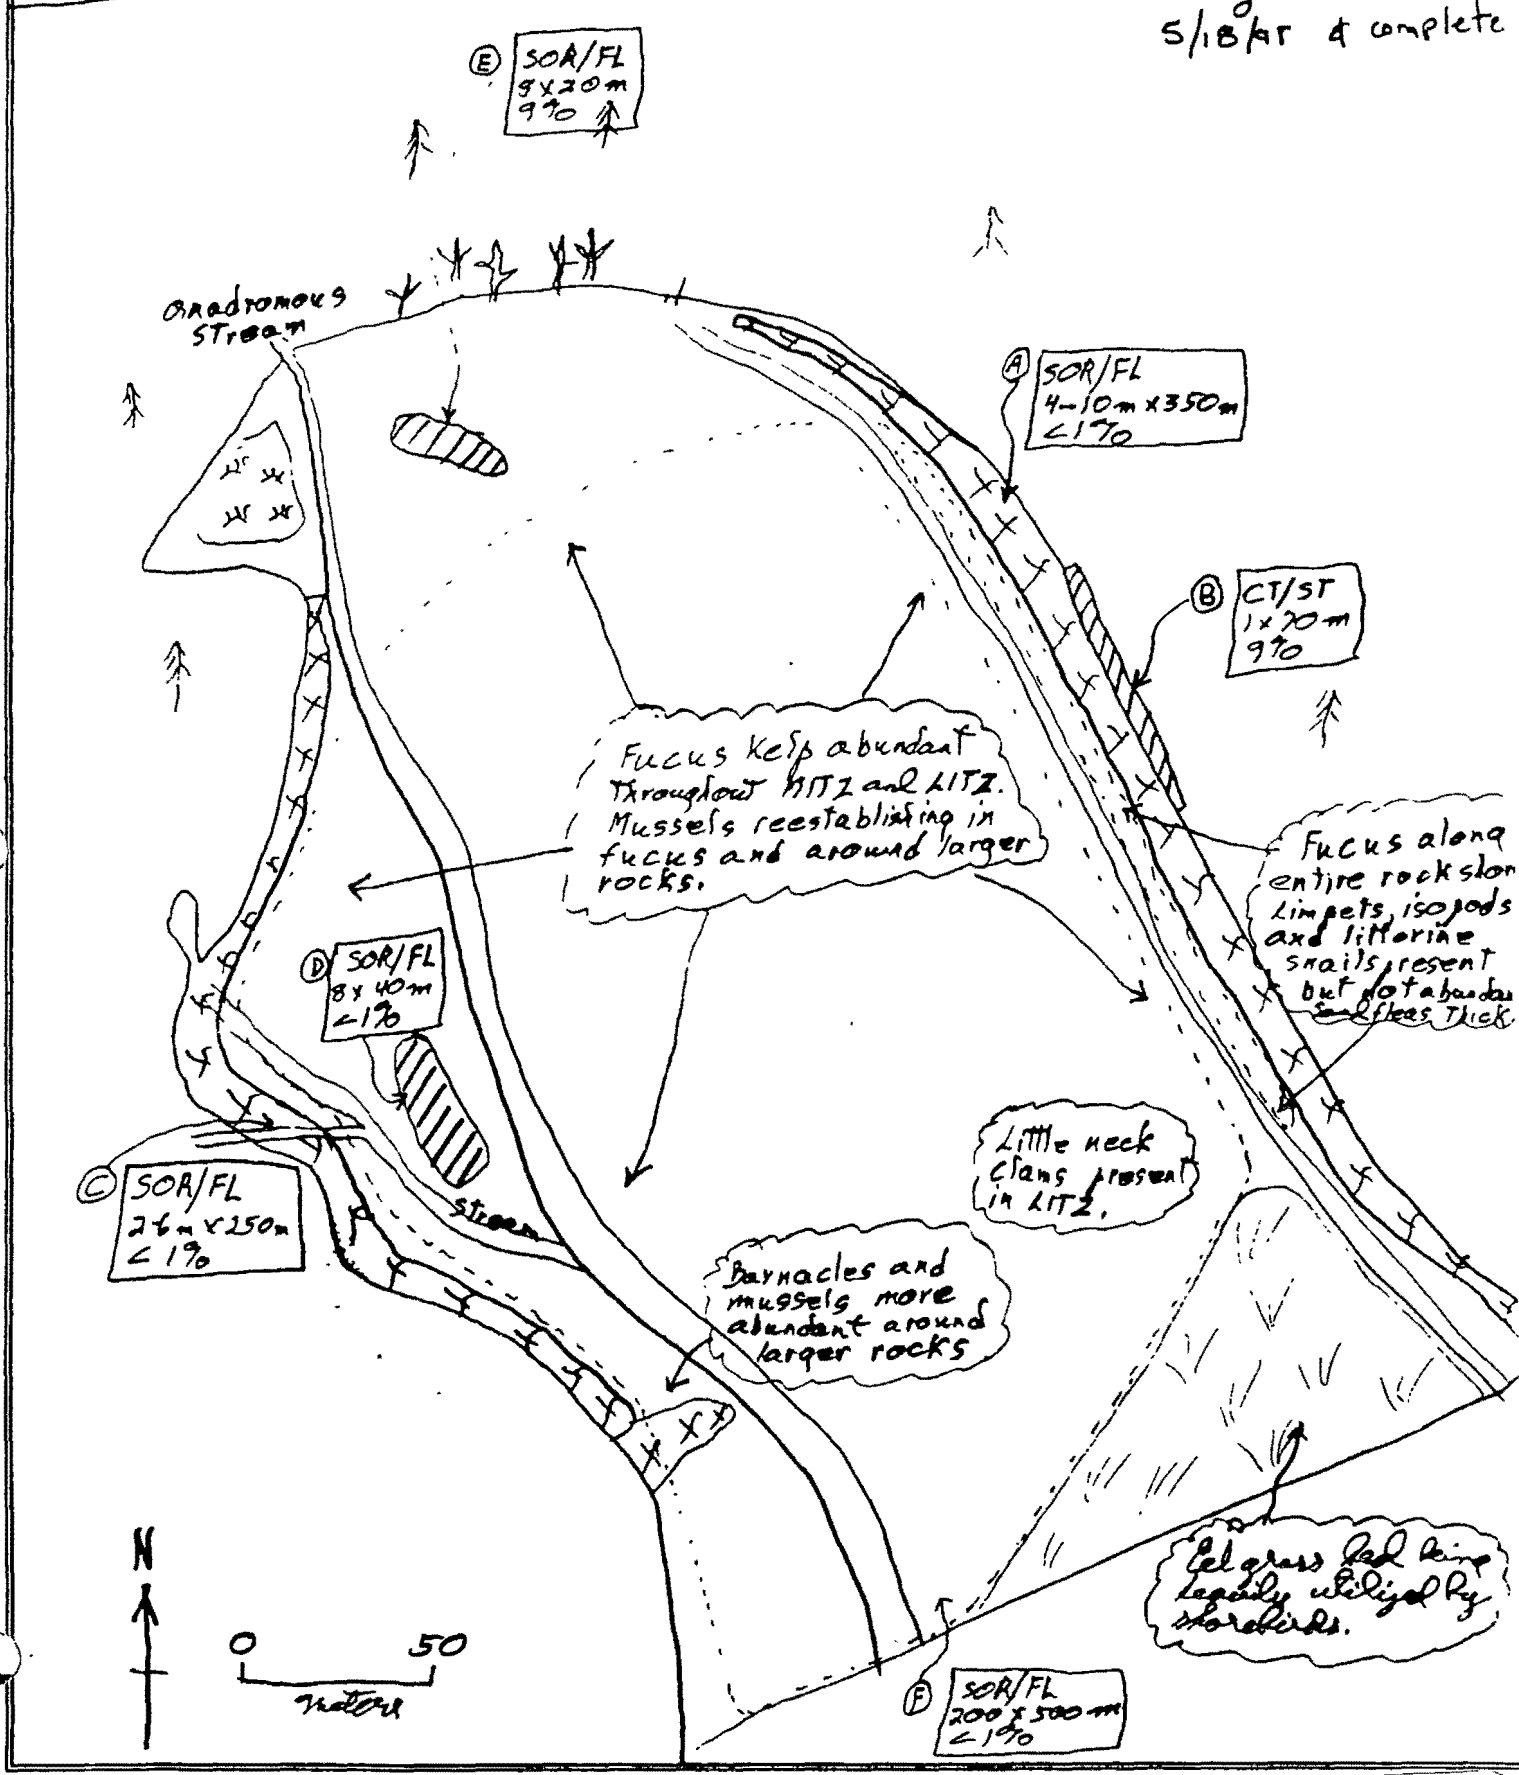 5/18/91 & complete
E
SOR/FL
8 x 20 m
9%
anadromous
stream
A
SOR/FL
4-10m x 350m
<1%
B
CT/ST
1 x 70 m
9%
Fucus kelp abundant
throughout MITZ and LITZ.
Mussels reestablishing in
fucus and around larger
rocks.
Fucus along
entire rock
Limpets, isopods
and littorine
snails present
but not
Sand fleas thick.
D
SOR/FL
8 x 40 m
<1%
C
SOR/FL
x 250m
<1%
stream
Little neck
clams present
in LITZ.
Barnacles and
mussels more
abundant around
larger rocks
Eel grass bed being
heavily utilized by
shorebirds.
N
0 50
meters
F
SOR/FL
200 x 500 m
<1%